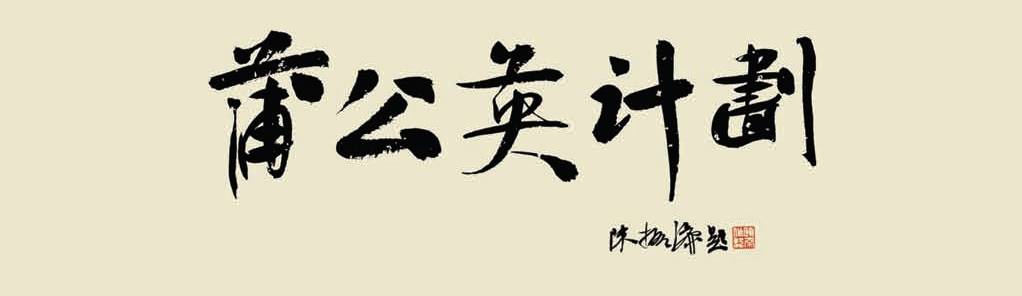 蒲公英计劃
陈振濂题